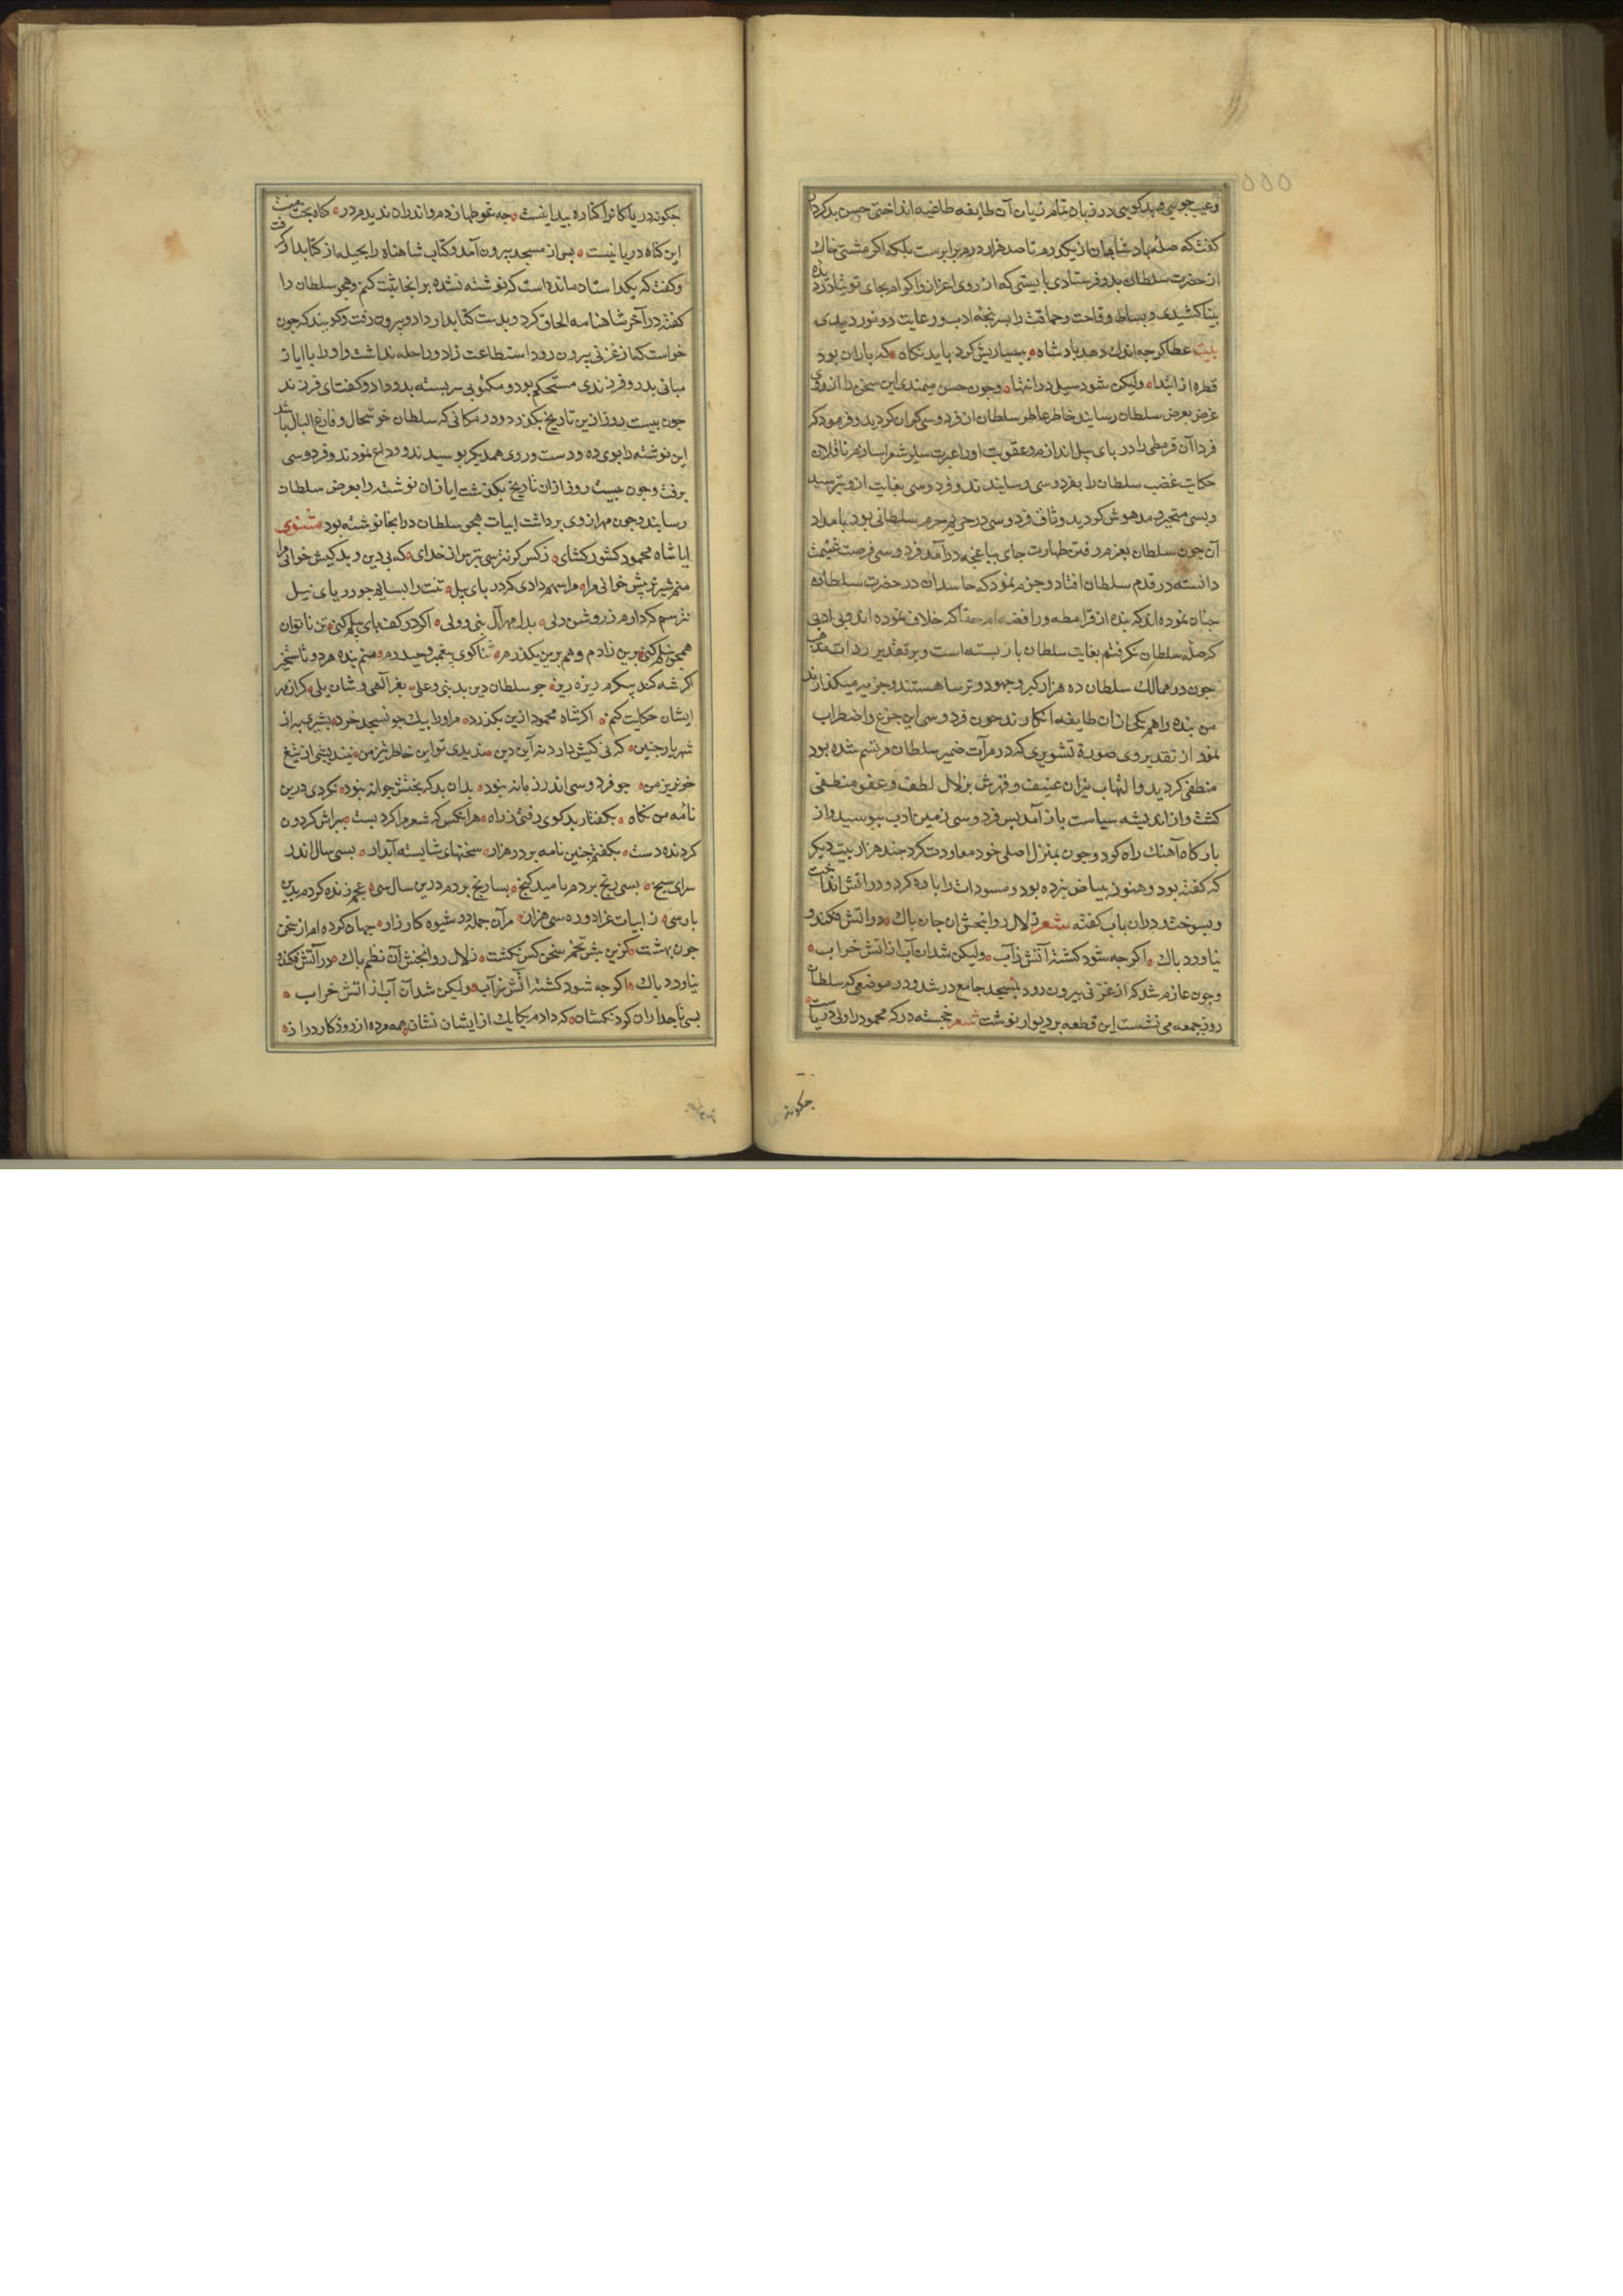 وعیب جویی و بدکویی در زبان تمام زبان آن طایفه طاغیه انداختی حسن بد کردار
کفت که صلهٔ بادشاهان از یکدرم تا صد هزار درم برابرست بلکه اکر مشتی خاک
از حضرت سلطان بدو فرستادی بایستی که از روی اعزاز و اکرام بجای توتیا در دیده
بینا کشیدی و بساط وقاحت و حماقت را بسرپنجه ادب و رعایت در نوردیدی
بیت عطا کرچه اندک دهد بادشاه بسیاریش کرد باید نکاه که باران بود
قطره از ابتدا ولیکن شود سیل در انتها وچون حسن میمندی این سخن را از روی
غرض بعرض سلطان رسانید خاطر عاطر سلطان از فردوسی کران کردید و فرمود که
فردا آن قرمطی را در بای بیل اندازم و عقوبت او را عبرت سایر شعرا سازم ناقلان
حکایت غضب سلطان را بفردوسی رسانیدند و فردوسی بغایت از و بترسید
وبسی متحیر و مدهوش کردید وثاق فردوسی در حریم حرم سلطانی بود بامداد
آن چون سلطان بعزم رفتن طهارت جای بباغچه درآمد فردوسی فرصت غنیمت
دانسته در قدم سلطان افتاد و جزم نمود که حاسدان در حضرت سلطانه
چنان نموده اند که بنده از قرامطه و رافضه ام حقا که خلاف نموده اند و بی ادبی
که صلهٔ سلطان نکرفتم بغایت سلطان باز بسته است و بر تقدیر رذات مذهب
چون در ممالک سلطان ده هزار کبر وجهود و ترسا هستند وجزیه میکذارند
من بنده را هم یکی از ان طایفه انکارند چون فردوسی این جزع و اضطراب
نمود از تقدیر وی صورة تشویری که در مرآت ضمیر سلطان مرتسم شده بود
منطفی کردید و التهاب نیران عنیف و قهرش بزلال لطف و عفو منطفی
کشت و از اندیشه سیاست باز آمد بس فردوسی زمین ادب ببوسید و از
بارکاه آهنک راه کرد وچون بمنزل اصلی خود معاودت کرد چند هزار بیت دیکر
که کفته بود و هنوز ببیاض نبرده بود و مسودات را باره کرد و در اتش انداخت
و بسوخت و در ان باب کفته شعر زلال روانبخش ان جان باک در اتش فکند و
نیاورد باک اکرچه شود کشته آتش ز آب ولیکن شد ان آب از اتش خراب
وچون عازم شد که از غزنی بیرون رود بمسجد جامع در شد و در موضعی که سلطان
روز جمعه می نشست این قطعه بر دیوار نوشت شعر خجسته درکه محمود زاولی دریاست
چکونه
چکونه دریا کانرا کناره بیدا نیست چه غوطها زدم و اندران ندیدم در کناه بخت منست
این کناه دریا نیست بس از مسجد بیرون آمد و کتاب شاهنامه را بحیله از کتابدار کرفت
و کفت که یکداستان مانده است که نوشته نشده بر انجا ثبت کنم و هجو سلطان را
کفته در آخر شاهنامه الحاق کرد و بدست کتابدار داد و بیرون رفت و کویند که چون
خواست که از غزنی بیرون رود استطاعت زاد و راحله نداشت و او را با ایاز
مبانی بدر و فرزندی مستحکم بود و مکتوبی سر بسته بدو داد و کفت ای فرزند
چون بیست روز از ین تاریخ بکذرد و در مکانی که سلطان خوشحال و فارغ البال باشد
این نوشته را بوی ده و دست و روی همدیکر بوسیدند و وداع نمودند و فردوسی
برفت و چون بیست روز از ان تاریخ بکذشت ایاز ان نوشته را بعرض سلطان
رسانید و چون مهر از وی برداشت ابیات هجو سلطان در انجا نوشته بود مثنوی
ایا شاه محمود کشور کشای زکس کر نترسی بترس از خدای که بی دین و بد کیش خوانی مرا
منم شیر نر میش خوانی مرا مرا سهم دادی که در بای بیل تنت را بسایم چو دریای نیل
نترسم که دارم ز روشن دلی بدل مهر آل نبی و ولی اکر در کف بای بیلم کنی تن ناتوان
همچو نیلم کنی برین زادم و هم برین بکذرم ثناکوی بیغمبر و حیدرم منم بنده هر دو تا رستخیز
اکر شه کند بیکرم ریزه ریز چو سلطان دین بد نبی و علی بفر آلهی و شان یلی کر از مهر
ایشان حکایت کنم اکر شاه محمود ازین بکذرد مر او را بیک جو نسنجد خرد
شهریار چنین که نی کیش دارد نه آیین دین ندیدی تو این خاطر تیز من نیندیشی از تیغ
خونریز من چو فردوسی اندر زمانه نبود بدان بد که بختش جوانه نبود نکردی درین
نامهٔ من نکاه بکفتار بدکوی رفتی ز راه هر انکس که شعر مرا کرد بست نبیراش کردون
کردنده دست بکفتم چنین نامه بر در هزار سخنهای شایسته آبدار بسی سال اندر
سرای سبنج بسی رنج بردم بامید کنج بسا رنج بردم درین سال سی عجم زنده کردم بدین
بارسی ز ابیات غرا دوره سی هزار مر آن جمله در شیوه کار زار جهان کرده ام از سخن
چون بهشت کزین بیش تخم سخن کس نکشت زلال روانبخش آن نظم باک در آتش فکند و
نیاورد باک اکرچه شود کشته اتش ز آب ولیکن شد آن آب از اتش خراب
بسی تاجداران کردنکشان که دادم یکایک از ایشان نشان همه مرده از روزکار دراز